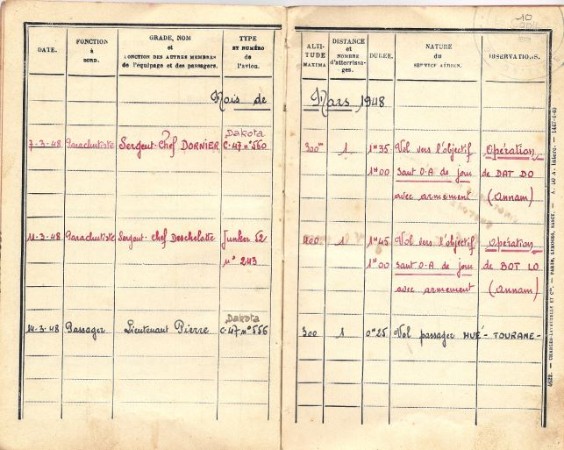 10
DATE.
FONCTION
à
BORD.
GRADE, NOM
et
FONCTION DES AUTRES MEMBRES
de l'équipage et des passagers.
TYPE
ET NUMÉRO
de
l'avion.
ALTI-
TUDE
MAXIMA
DISTANCE
et
NOMBRE
d'atterrissa-
ges.
DURÉE.
NATURE
du
SERVICE AÉRIEN.
OBSERVATIONS.
Mois de Mars 1948
7-3-48 Parachutiste Sergent-Chef DORNIER Dakota 300m 1 1h35 Vol vers l'objectif Opération
C-47 n° 560 1h00 Saut O-A de jour de DAT DO
avec armement (Annam)
11-3-48 Parachutiste Sergent-chef Deschelotte Junker 52 1 1h45 Vol vers l'objectif Opération
n° 243 1h00 Saut O-A de jour de BOT LO
avec armement (Annam)
14-3-48 Passager Lieutenant Pierre Dakota 300 1 0h25 Vol passager HUÉ - TOURANE -
C-47 n° 556